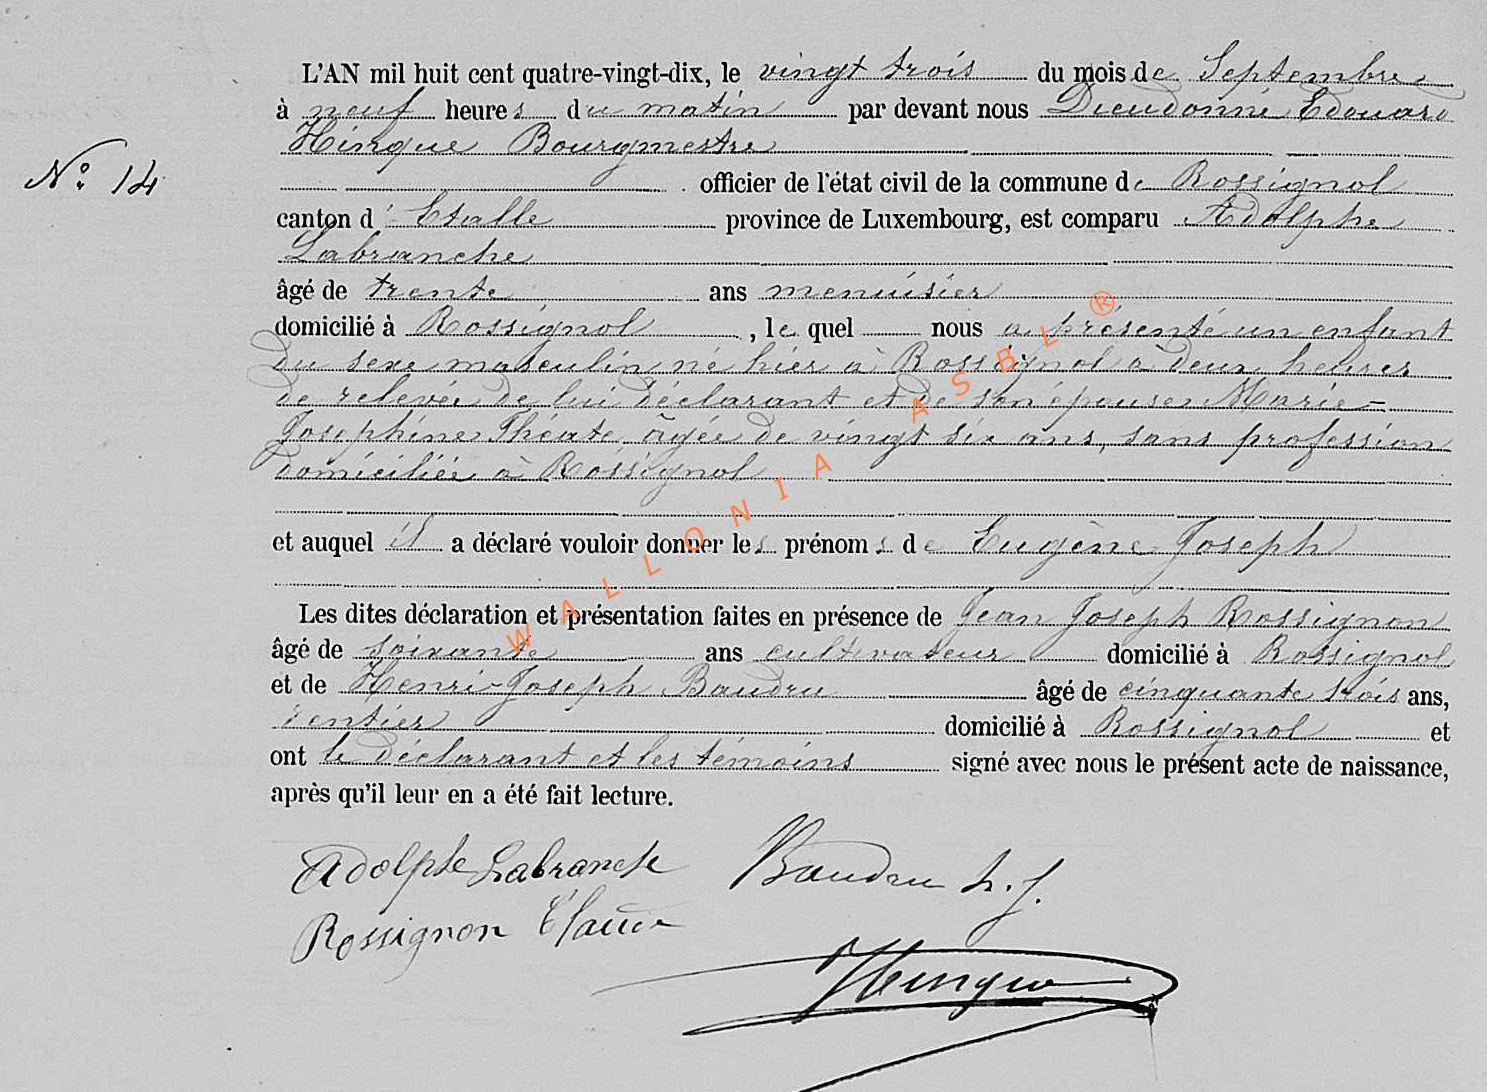 L'AN mil huit cent quatre-vingt-dix, le vingt trois du mois de Septembre
à neuf heures du matin par devant nous Dieudonné Edouard
Hinque Bourgmestre
N° 14
officier de l'état civil de la commune de Rossignol
canton d'Etalle province de Luxembourg, est comparu Adolphe
Labranche
âgé de trente ans menuisier
domicilié à Rossignol, lequel nous a présenté un enfant
du sexe masculin né hier à Rossignol à deux heures
de relevée de lui déclarant et de son épouse Marie-
Josephine Théate, âgée de vingt six ans, sans profession
domiciliée à Rossignol
et auquel il a déclaré vouloir donner les prénoms de Eugène Joseph
Les dites déclaration et présentation faites en présence de Jean Joseph Rossignon
âgé de soixante ans cultivateur domicilié à Rossignol
et de Henri-Joseph Baudru âgé de cinquante trois ans,
rentier domicilié à Rossignol et
ont le déclarant et les témoins signé avec nous le présent acte de naissance,
après qu'il leur en a été fait lecture.
Adolphe Labranche Baudru h. j.
Rossignon
Hinque
WALLONIA ASBL ®